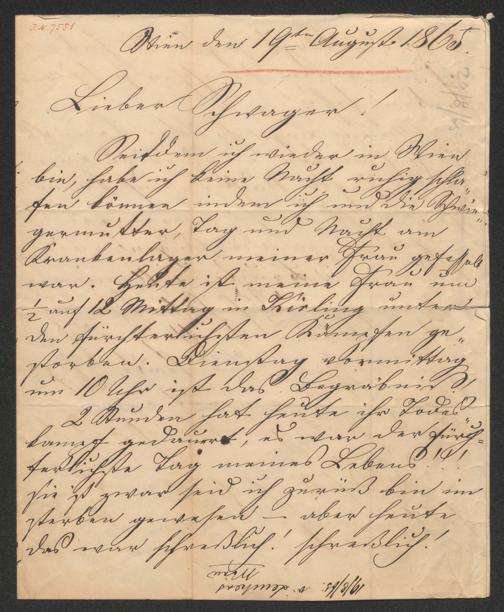 I.N. 7556
Wien den 19ten August 1865.
Lieber Schwager!
Seitdem ich wieder in Wien
bin, habe ich keine Nacht ruhig schla-
fen können indem ich und die Schwie-
germutter, Tag und Nacht am
Krankenlager meiner Frau gefesselt
war. Heute ist meine Frau um
½ auf 12 Mittag in Kirling unter
den fürchterlichsten Kämpfen ge-
storben. Dienstag vormittag
um 10 Uhr ist das Begräbniß
2 Stunden hat heute ihr Todes
kampf gedauert, es war der fürch-
terlichste Tag meines Lebens!!!
sie ist zwar seid ich zurück bin im
sterben gewesen — aber heute
das war schreklich! schreklich!
19/8/65. v.
Wien